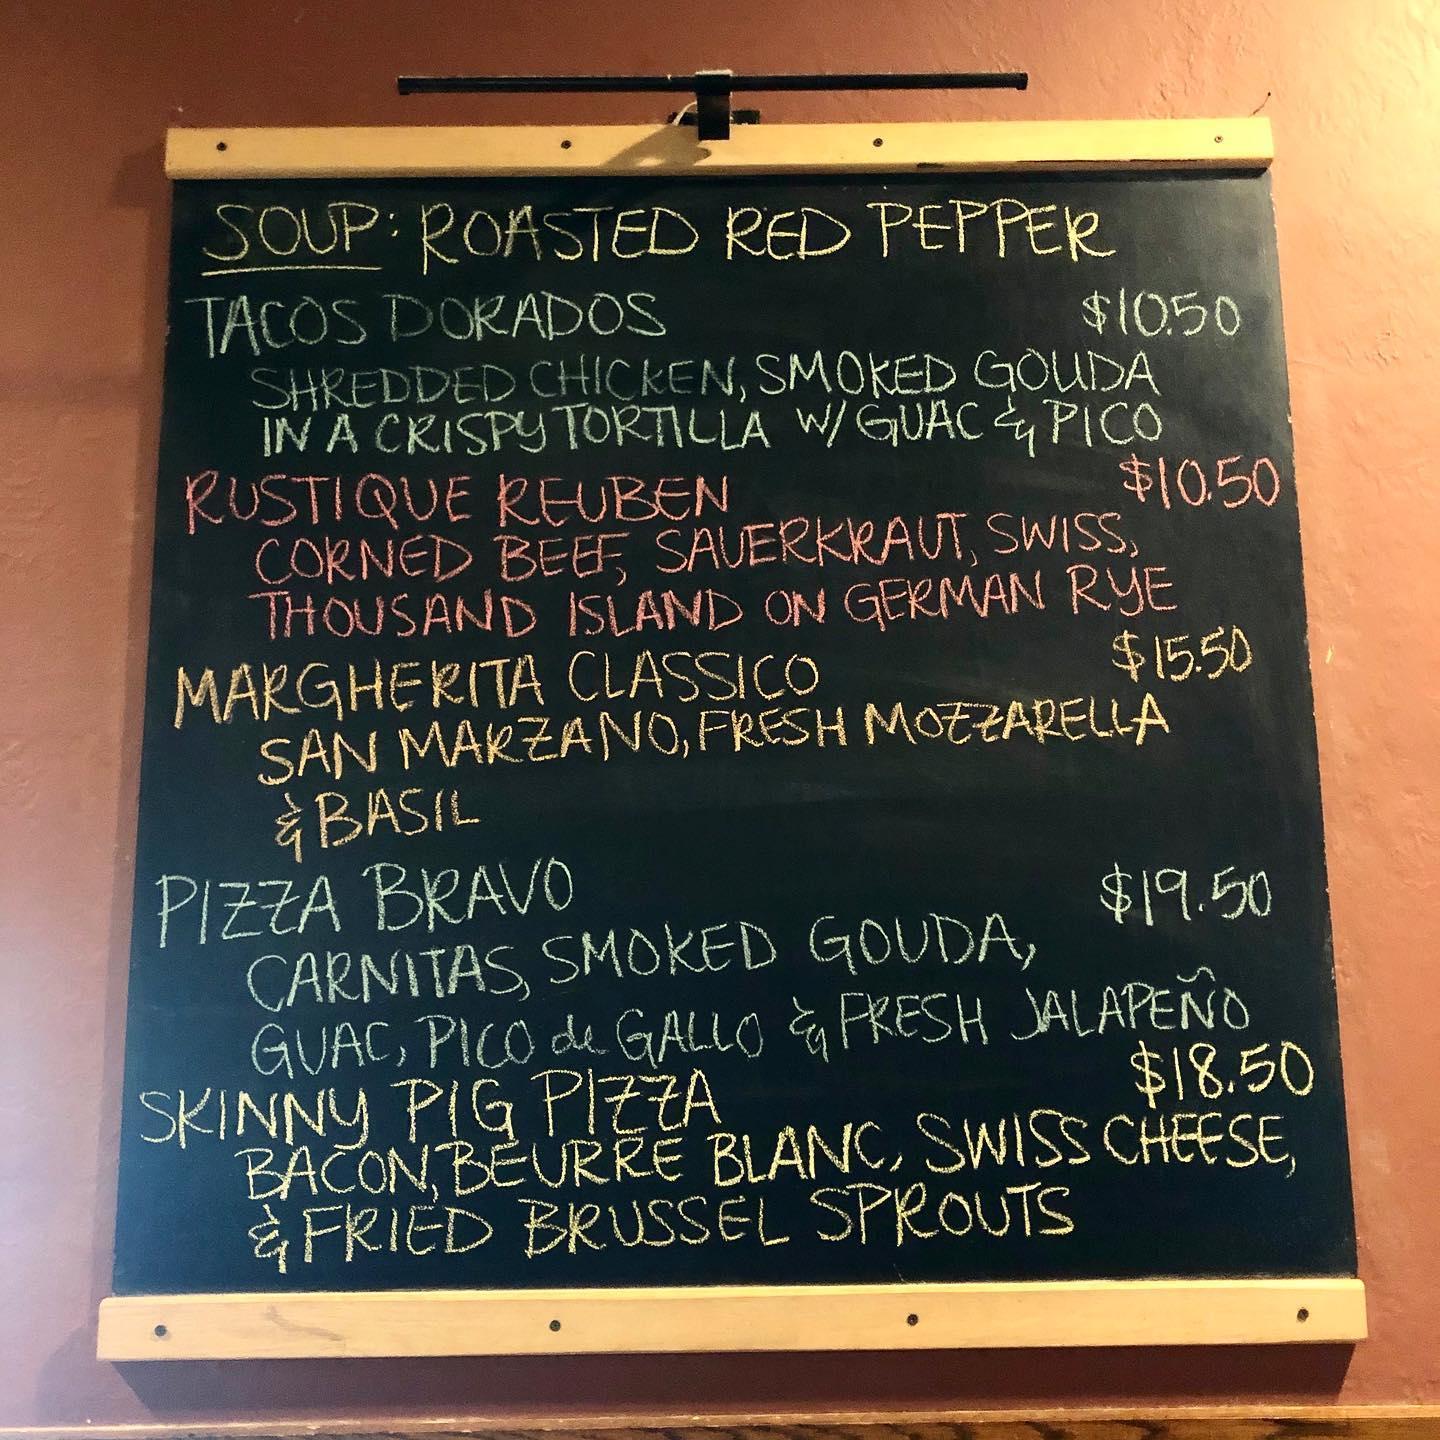 SOUP: ROASTED RED PEPPER
TACOS DORADOS $10.50
SHREDDED CHICKEN, SMOKED GOUDA
IN A CRISPY TORTILLA W/ GUAC & PICO
RUSTIQUE REUBEN $10.50
CORNED BEEF, SAUERKRAUT, SWISS,
THOUSAND ISLAND ON GERMAN RYE
MARGHERITA CLASSICO $15.50
SAN MARZANO, FRESH MOZZARELLA
& BASIL
PIZZA BRAVO $19.50
CARNITAS, SMOKED GOUDA,
GUAC, PICO de GALLO & FRESH JALAPEÑO
SKINNY PIG PIZZA $18.50
BACON, BEURRE BLANC, SWISS CHEESE,
& FRIED BRUSSEL SPROUTS